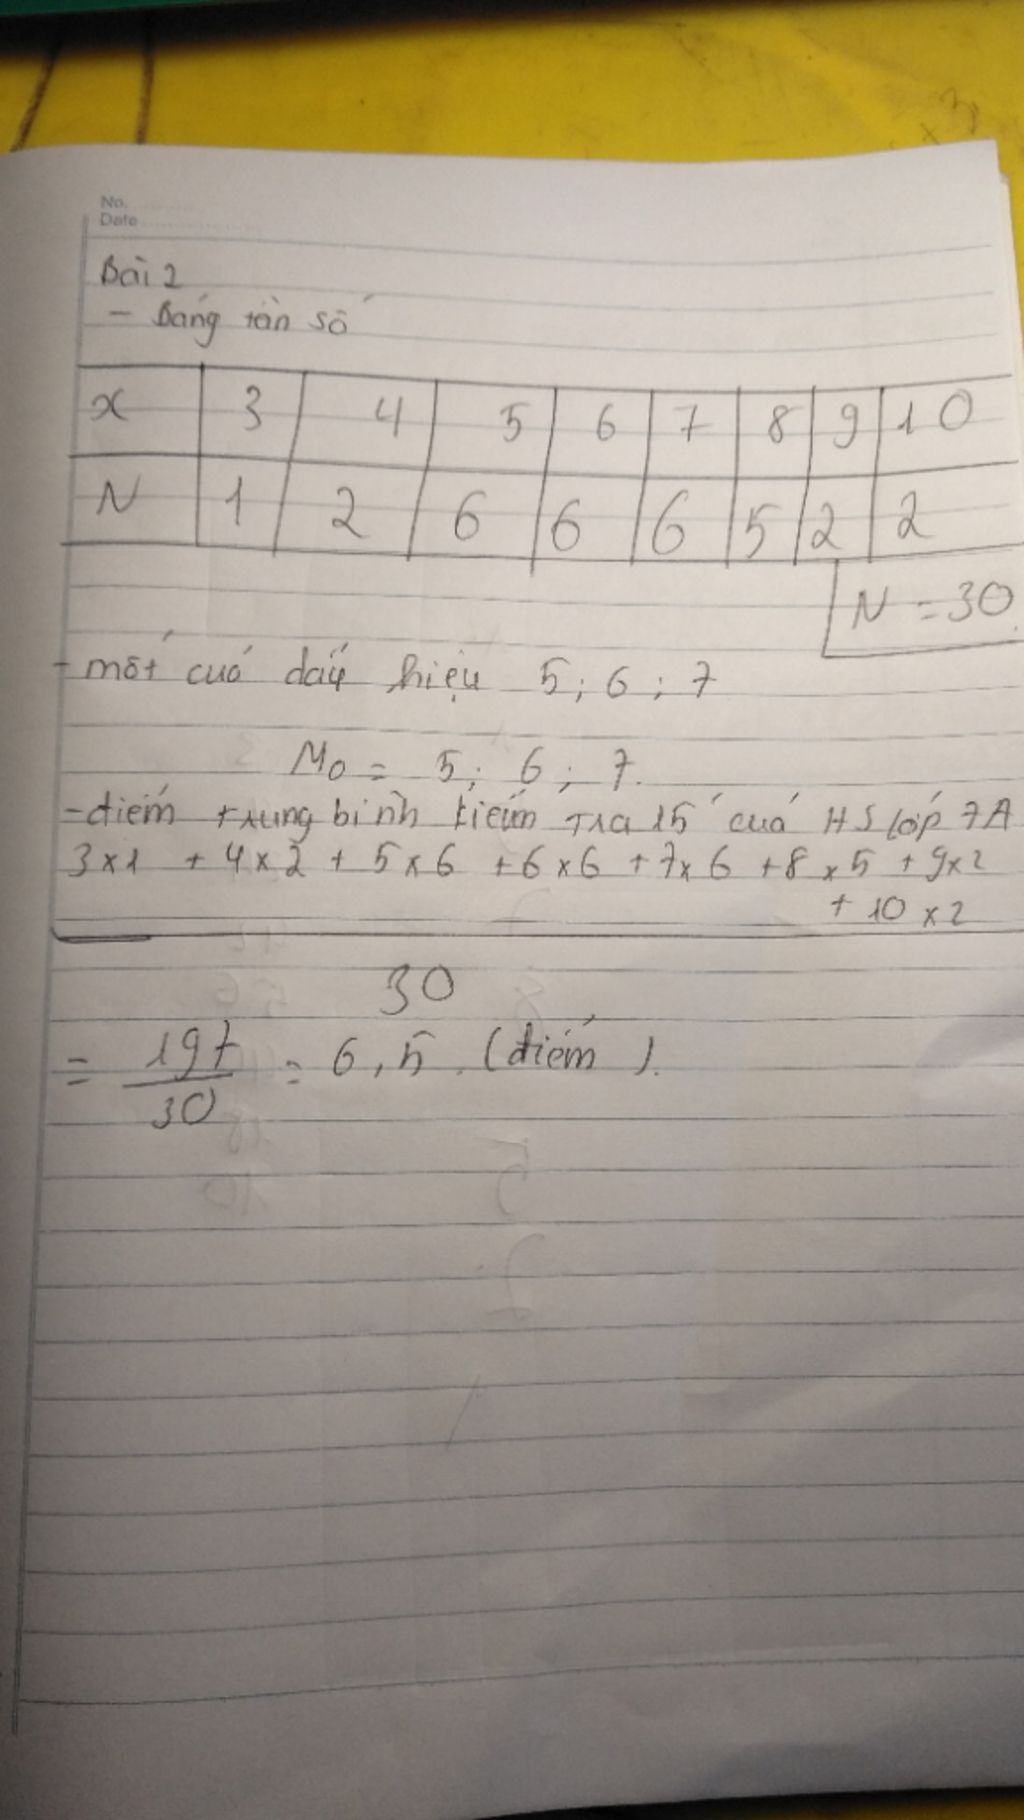 No.
Date
Bài 2
- Bảng tần số
x 3 4 5 6 7 8 9 10
N 1 2 6 6 6 5 2 2
N = 30
- mốt cuả dấu hiệu 5 ; 6 ; 7
M0 = 5 ; 6 ; 7.
- điểm trung bình kiểm tra 15' cuả HS lớp 7A
3 x 1 + 4 x 2 + 5 x 6 + 6 x 6 + 7 x 6 + 8 x 5 + 9 x 2
+ 10 x 2
30
= 197/30 = 6,5 (điểm).